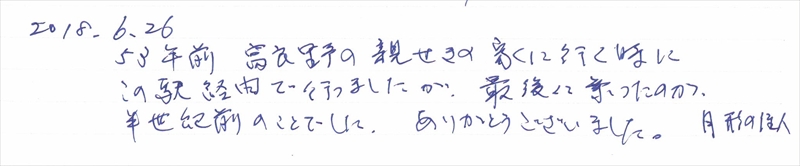 2018.6.26
53年前 富良野の親せきの家に行く時に
この駅経由で行ってましたが、最後に乗ったのが、
半世紀前のことでした。 ありがとうございました。 月形の住人